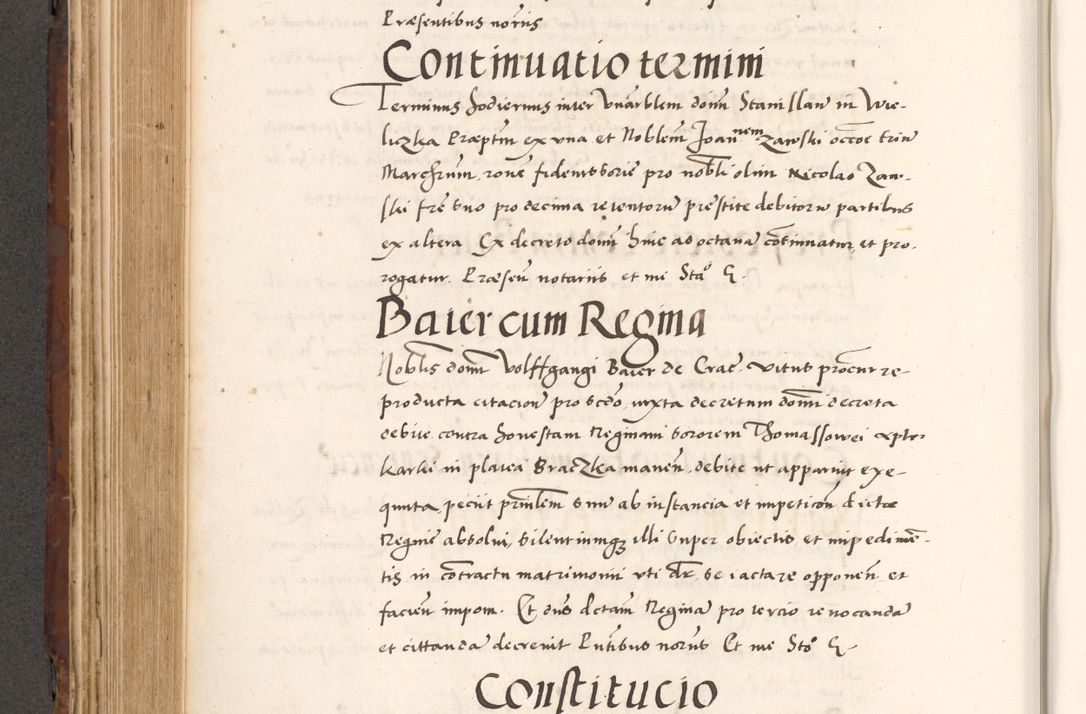 Præsentibus notriis
Continuatio termini
Terminus hodiernus inter Vnarblem domi Stanislau in Wie-
liczka Præptm ex vna et Noblem Joannem Zawski occoe trin
March̃rum, rone fideiussorie pro nobli olim Nicolao Zaw-
ski fre suo pro decima retentoru prestite debitoru partibus
ex altera Ex decreto domi hinc ad octana cotinuatur et pro-
rogatur. Præsen notariis et me Sta
Baier cum Regina
Noblis domi Volffgangi Baier de Crac. Vitus procur re-
producta citacion pro scdo, iuxta decretum domi decreta
debite contra honestam Reginam sororem Thomassowei
karki in platea Braczka manen, debite ut apparuit exe-
quuta, peciit prnlem suu ab instancia et impeticon dictæ
Regine absolui, silentiumq illi super obiectis et impedimē-
tis in cotractu matrimonii vti dr, se iactare opponen et
facien impom. Et dns dctam Regina pro tercio reuocanda
et cittanda decreuit Pntibus notris Et me Sto
Constitucio